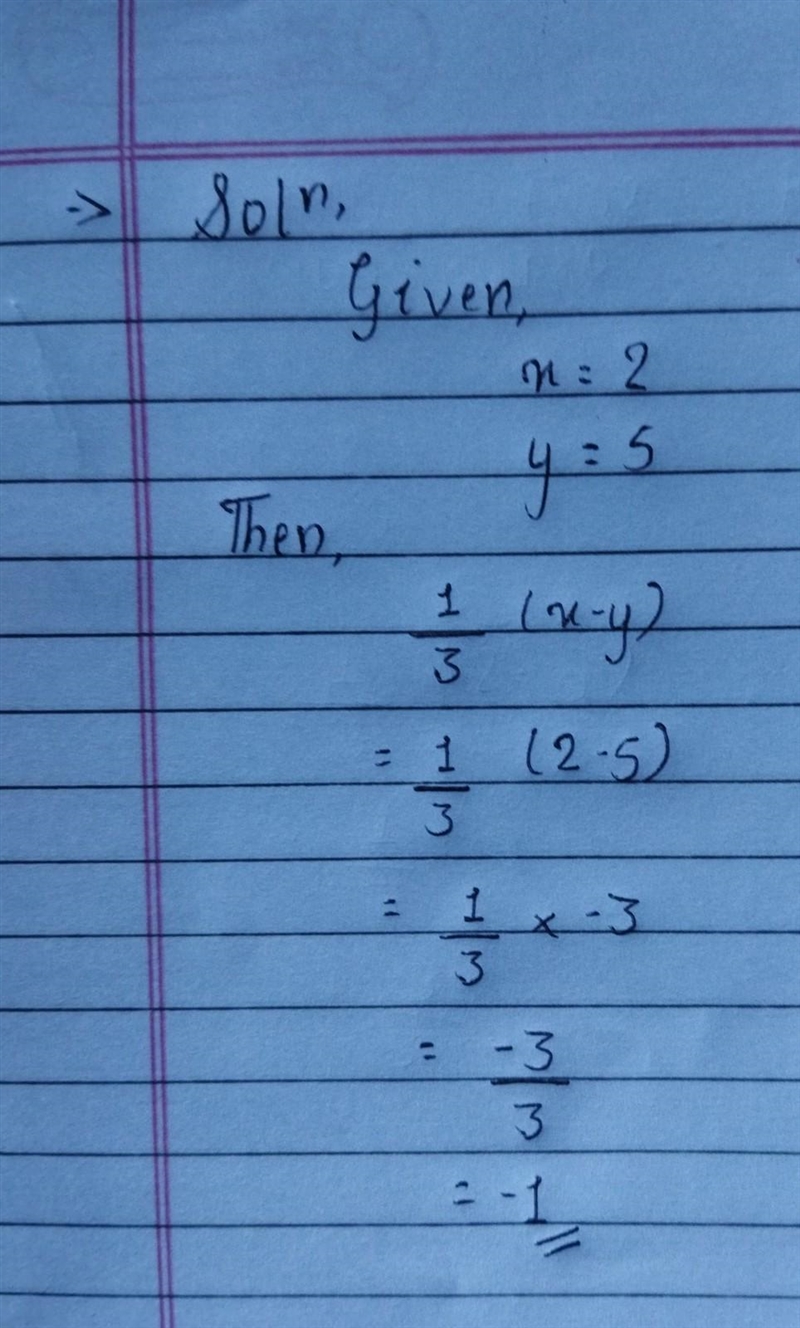 -> Solⁿ,
Given,
x = 2
y = 5
Then,
1/3 (x-y)
= 1/3 (2-5)
= 1/3 × -3
= -3/3
= -1